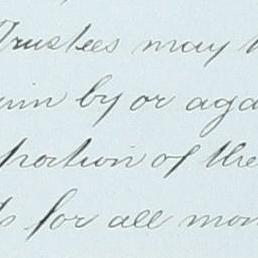 Trustees may
by or aga
portion of the
for all mon